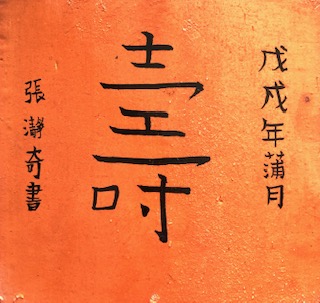 戊戌年蒲月
壽
張瀞奇書